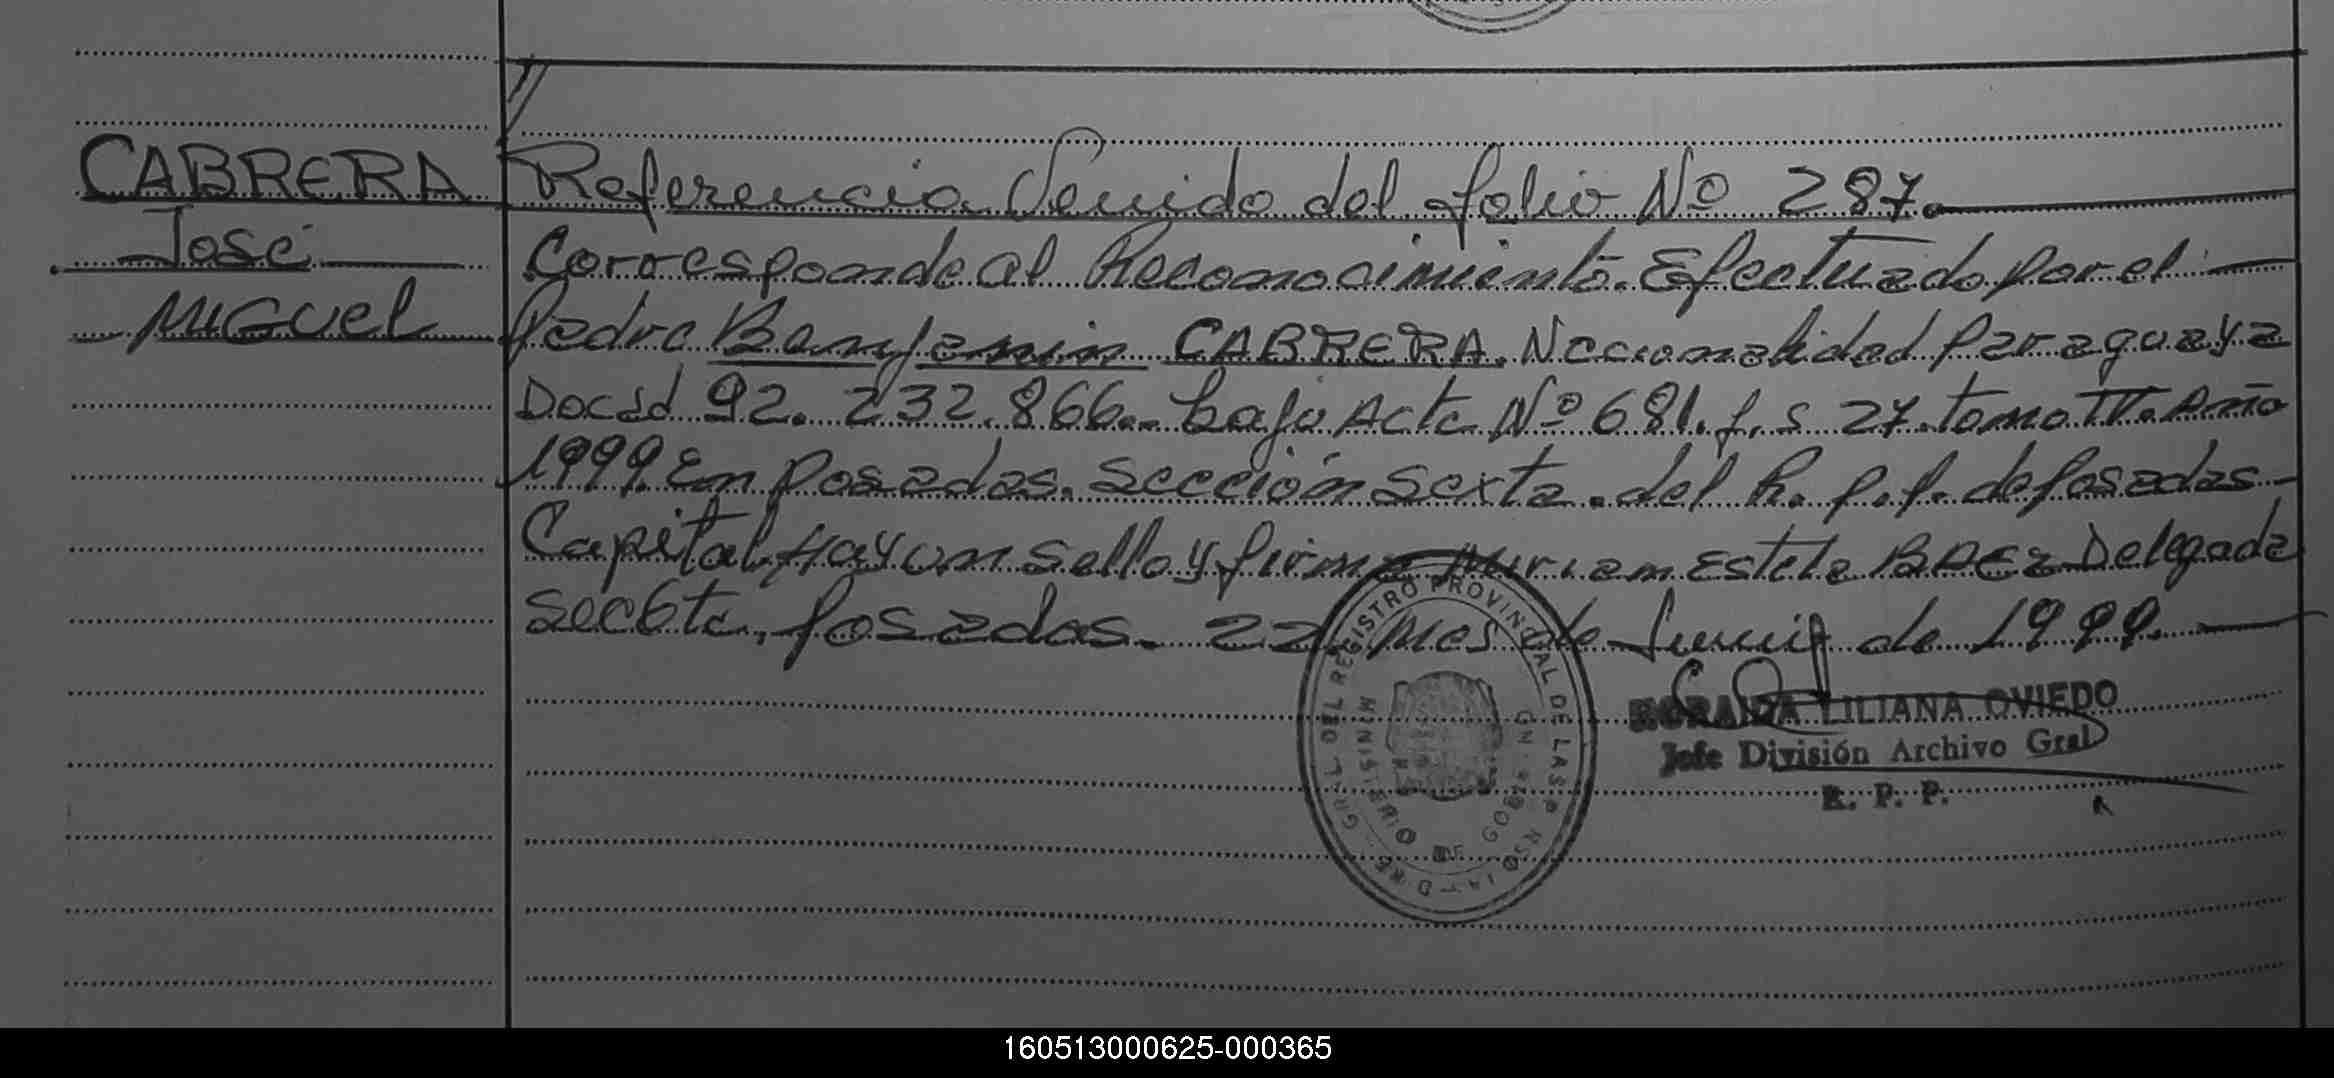 CABRERA
José
MIGUEL
Referencia Venido del folio Nº 287.
Corresponde al Reconocimiento. Efectuado por el
Padre Benjamin CABRERA. Nacionalidad Paraguaya
Docid 92.232.866.- bajo Acta Nº 681. f. s 27. tomo IV. Año
1999. En Posadas. Sección Sexta. del R. P. P. de Posadas-
Capital, Hay un Sello y firma Miriam Estela BAEZ Delegada
Sec 6ta, Posadas. 22 Mes de Junio de 1999.
LILIANA OVIEDO
Jefe División Archivo Gral
R. P. P.
GRAL DEL REGISTRO PROVINCIAL DE LAS P
MINISTERIO DE GOBIERNO
160513000625-000365